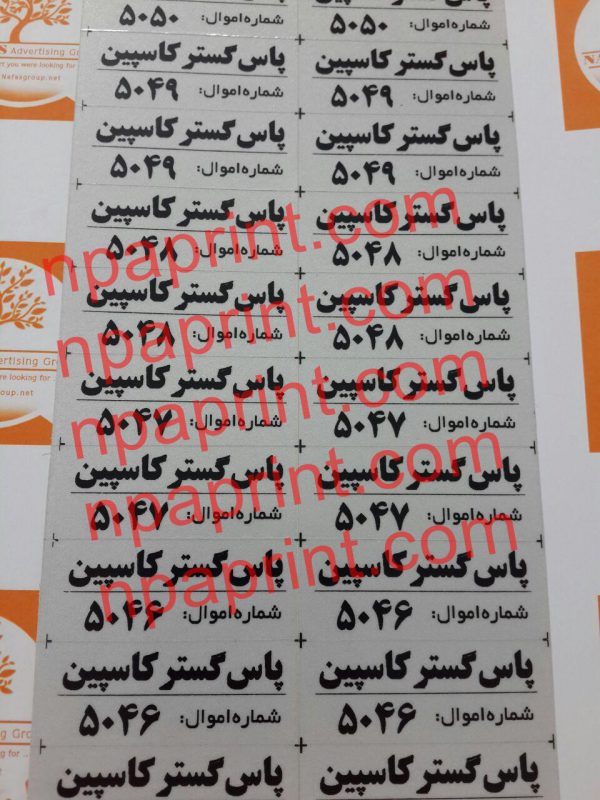 پاس گستر کاسپین پاس گستر کاسپین
شماره اموال: ۵۰۵۰ شماره اموال: ۵۰۵۰
پاس گستر کاسپین پاس گستر کاسپین
شماره اموال: ۵۰۴۹ شماره اموال: ۵۰۴۹
پاس گستر کاسپین پاس گستر کاسپین
شماره اموال: ۵۰۴۹ شماره اموال: ۵۰۴۹
پاس گستر کاسپین پاس گستر کاسپین
شماره اموال: ۵۰۴۸ شماره اموال: ۵۰۴۸
پاس گستر کاسپین پاس گستر کاسپین
شماره اموال: ۵۰۴۸ شماره اموال: ۵۰۴۸
پاس گستر کاسپین پاس گستر کاسپین
شماره اموال: ۵۰۴۷ شماره اموال: ۵۰۴۷
پاس گستر کاسپین پاس گستر کاسپین
شماره اموال: ۵۰۴۷ شماره اموال: ۵۰۴۷
پاس گستر کاسپین پاس گستر کاسپین
شماره اموال: ۵۰۴۶ شماره اموال: ۵۰۴۶
پاس گستر کاسپین پاس گستر کاسپین
شماره اموال: ۵۰۴۶ شماره اموال: ۵۰۴۶
پاس گستر کاسپین پاس گستر کاسپین
npaprint.com
npaprint.com
npaprint.com
npaprint.com
npaprint.com
Advertising Gr
you were looking for
Nafaxgroup.net
ertising Gr
re looking for
oup.net